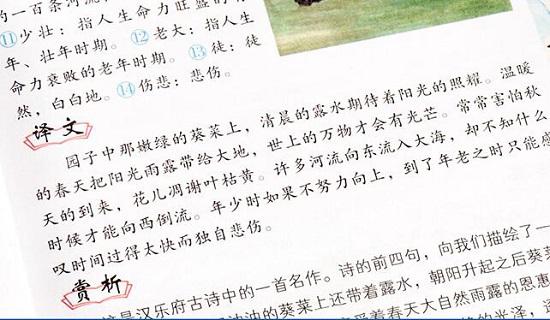 的一百条河流
⑪少壮：指人生命力旺盛的
年、壮年时期。⑫老大：指人生
命力衰败的老年时期。⑬徒：徒
然，白白地。⑭伤悲：悲伤。
译文
园子中那嫩绿的葵菜上，清晨的露水期待着阳光的照耀。温暖
的春天把阳光雨露带给大地，世上的万物才会有光芒。常常害怕秋
天的到来，花儿凋谢叶枯黄。许多河流向东流入大海，却不知什么
时候才能向西倒流。年少时如果不努力向上，到了年老之时只能感
叹时间过得太快而独自悲伤。
赏析
这是汉乐府古诗中的一首名作。诗的前四句，向我们描绘了一
油油的葵菜上还带着露水，朝阳升起之后葵菜
受着春天大自然雨露的恩惠
的光泽，这